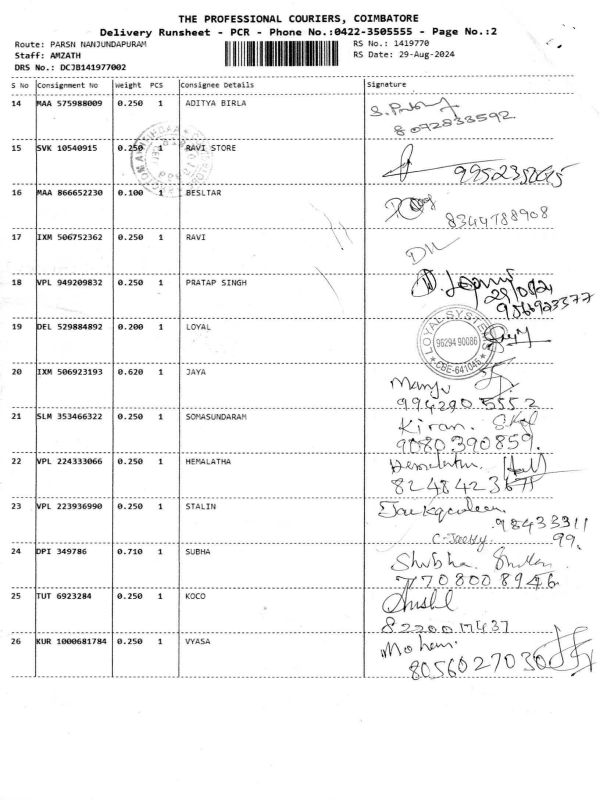 THE PROFESSIONAL COURIERS, COIMBATORE
Delivery Runsheet - PCR - Phone No.:0422-3505555 - Page No.:2
Route: PARSN NANJUNDAPURAM RS No.: 1419770
Staff: AMZATH RS Date: 29-Aug-2024
DRS No.: DCJB141977002
S No Consignment No Weight PCS Consignee Details Signature
14 MAA 575988009 0.250 1 ADITYA BIRLA
8072833592
15 SVK 10540915 0.250 1 RAVI STORE
16 MAA 866652230 0.100 1 BESLTAR
8344788908
17 IXM 506752362 0.250 1 RAVI
18 VPL 949209832 0.250 1 PRATAP SINGH
29/08/24
9566923377
19 DEL 529884892 0.200 1 LOYAL
LOYAL SYSTEMS
96294 90086
CBE-641045
20 IXM 506923193 0.620 1 JAYA
Manju
994290 5552
21 SLM 353466322 0.250 1 SOMASUNDARAM
Kiran.
9080390859.
22 VPL 224333066 0.250 1 HEMALATHA
Hemalatha.
8248423671
23 VPL 223936990 0.250 1 STALIN
98433311
99.
24 DPI 349786 0.710 1 SUBHA
Shubha.
7708008946
25 TUT 6923284 0.250 1 KOCO
8220017437
26 KUR 1000681784 0.250 1 VYASA
Mohan.
8056027030